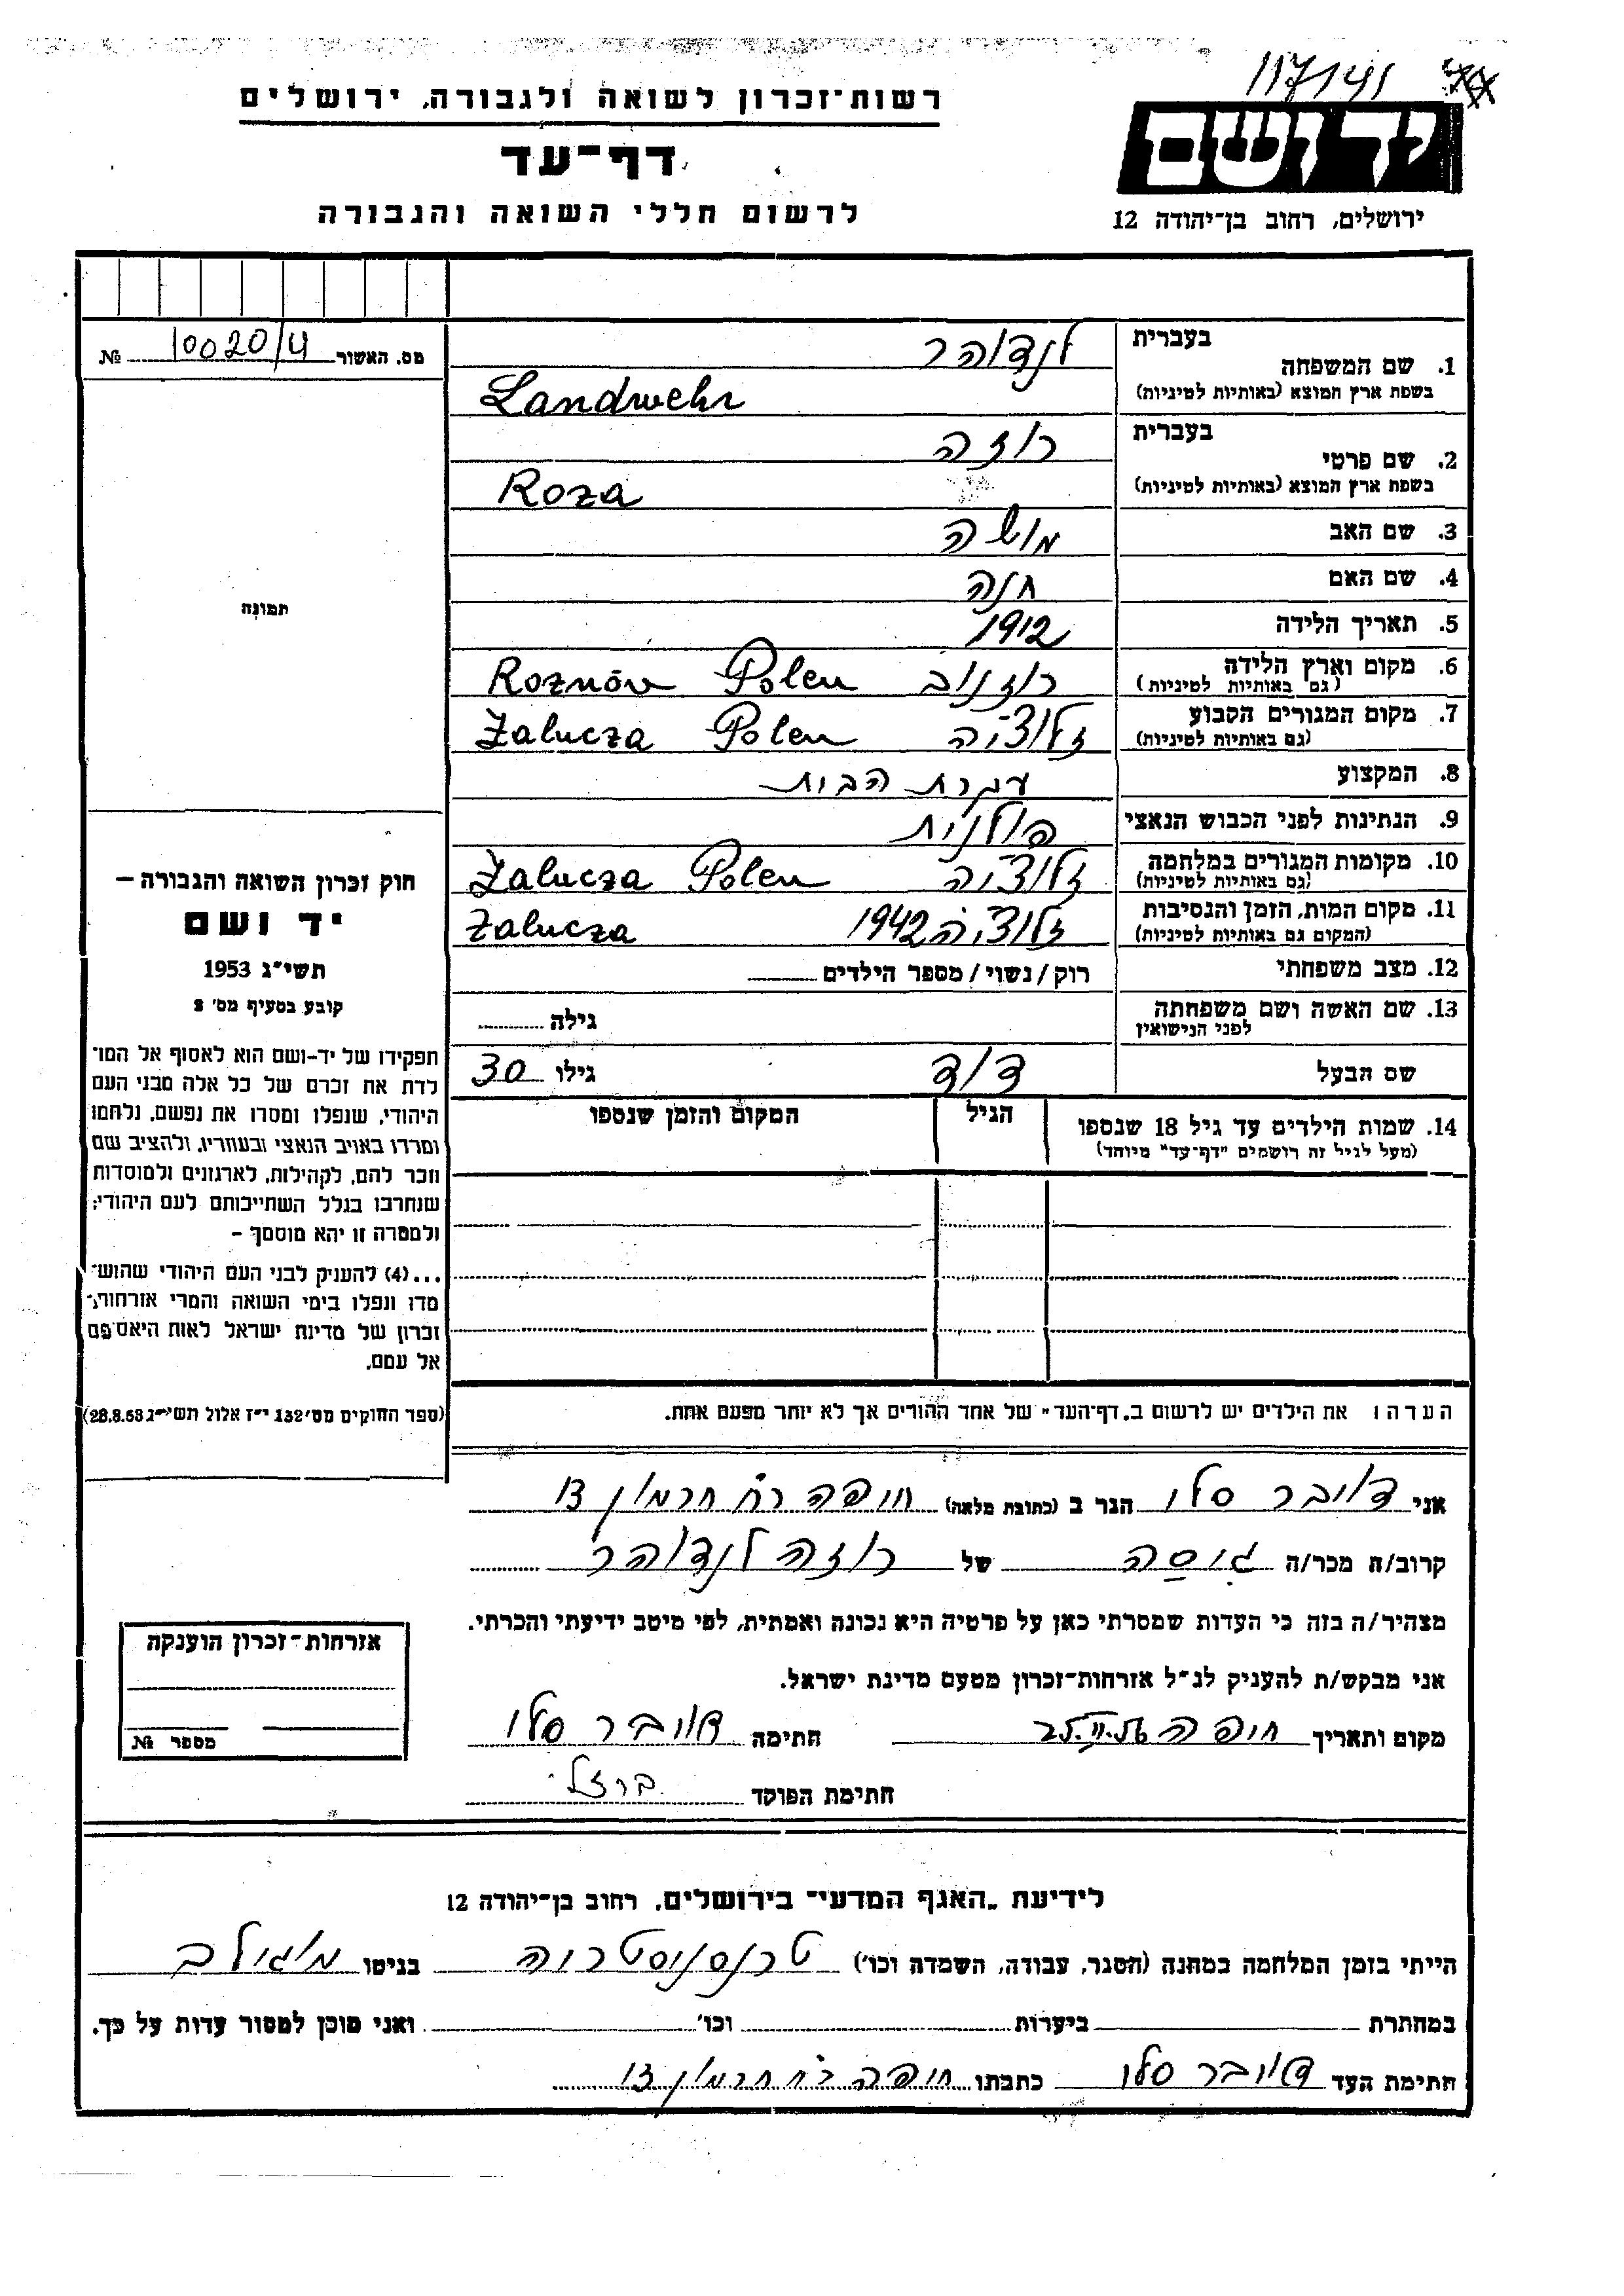 117141
רשות-זכרון לשואה ולגבורה, ירושלים
דף-עד
לרשום חללי השואה והגבורה
יד ושם
ירושלים, רחוב בן-יהודה 12
מס. האשור 10020/4 №
תמונה
בעברית לנדוהר
1. שם המשפחה
בשפת ארץ המוצא (באותיות לטיניות) Landwehr
בעברית רוזה
2. שם פרטי
בשפת ארץ המוצא (באותיות לטיניות) Roza
3. שם האב משה
4. שם האם חנה
5. תאריך הלידה 1912
6. מקום וארץ הלידה רוזנוב Polen Roznów
(גם באותיות לטיניות)
7. מקום המגורים הקבוע זלוצ'ה Polen Zalucza
(גם באותיות לטיניות)
8. המקצוע עקרת הבית
9. הנתינות לפני הכבוש הנאצי פולנית
10. מקומות המגורים במלחמה זלוצ'ה Polen Zalucza
(גם באותיות לטיניות)
11. מקום המות, הזמן והנסיבות זלוצ'ה 1942 Zalucza
(המקום גם באותיות לטיניות)
12. מצב משפחתי רוק/נשוי/מספר הילדים
13. שם האשה ושם משפחתה גילה
לפני הנישואין
שם הבעל דוד גילו 30
14. שמות הילדים עד גיל 18 שנספו הגיל המקום והזמן שנספו
(מעל לגיל זה רושמים "דף-עד" מיוחד)
הערה: את הילדים יש לרשום ב"דף-העד" של אחד ההורים אך לא יותר מפעם אחת.
חוק זכרון השואה והגבורה —
יד ושם
תשי"ג 1953
קובע בסעיף מס' 2
תפקידו של יד-ושם הוא לאסוף אל המו-
לדת את זכרם של כל אלה מבני העם
היהודי, שנפלו ומסרו את נפשם, נלחמו
ומרדו באויב הנאצי ובעוזריו, ולהציב שם
וזכר להם, לקהילות, לארגונים ולמוסדות
שנחרבו בגלל השתייכותם לעם היהודי;
ולמטרה זו יהא מוסמך —
...(4) להעניק לבני העם היהודי שהוש-
מדו ונפלו בימי השואה והמרי אזרחות-
זכרון של מדינת ישראל לאות היאספם
אל עמם.
(ספר החוקים מס' 132 י"ז אלול תשי"ג 28.8.53)
אני דויבר סלו הגר ב (כתובת מלאה) חיפה רח חרמון 13
קרוב/ת מכר/ה גיסה של רוזה לנדוהר
מצהיר/ה בזה כי העדות שמסרתי כאן על פרטיה היא נכונה ואמתית, לפי מיטב ידיעתי והכרתי.
אני מבקש/ת להעניק לנ"ל אזרחות-זכרון מטעם מדינת ישראל.
מקום ותאריך חיפה 25.VI.56 חתימה דויבר סלו
חתימת הפוקד ברזלי
אזרחות-זכרון הוענקה
מספר №
לידיעת "האגף המדעי" בירושלים, רחוב בן-יהודה 12
הייתי בזמן המלחמה במחנה (הסגר, עבודה, השמדה וכו') טרנסניסטריה בגיטו מוגילב
במחתרת ביערות וכו' ואני מוכן למסור עדות על כך.
חתימת העד דויבר סלו כתבתו חיפה רח חרמון 13